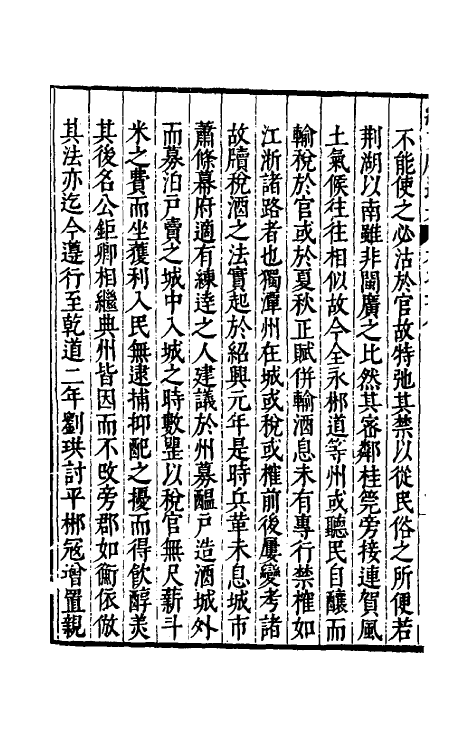 不能使之必沽於官故特弛其禁以從民俗之所便若
荆湖以南雖非閩廣之比然其密鄰桂筦旁接連賀風
土氣候往往相似故今全永郴道等州或聽民自釀而
輸稅於官或於夏秋正賦併輸酒息未有專行禁榷如
江浙諸路者也獨潭州在城或稅或榷前後屢變考諸
故牘稅酒之法實起於紹興元年是時兵革未息城市
蕭條幕府適有練達之人建議於州募醞戸造酒城外
而募泊戸賣之城中入城之時數罌以稅官無尺薪斗
米之費而坐獲利入民無逮捕抑配之擾而得飲醇美
其後名公鉅卿相繼典州皆因而不改旁郡如衡依倣
其法亦迄今遵行至乾道二年劉珙討平郴冦增置親